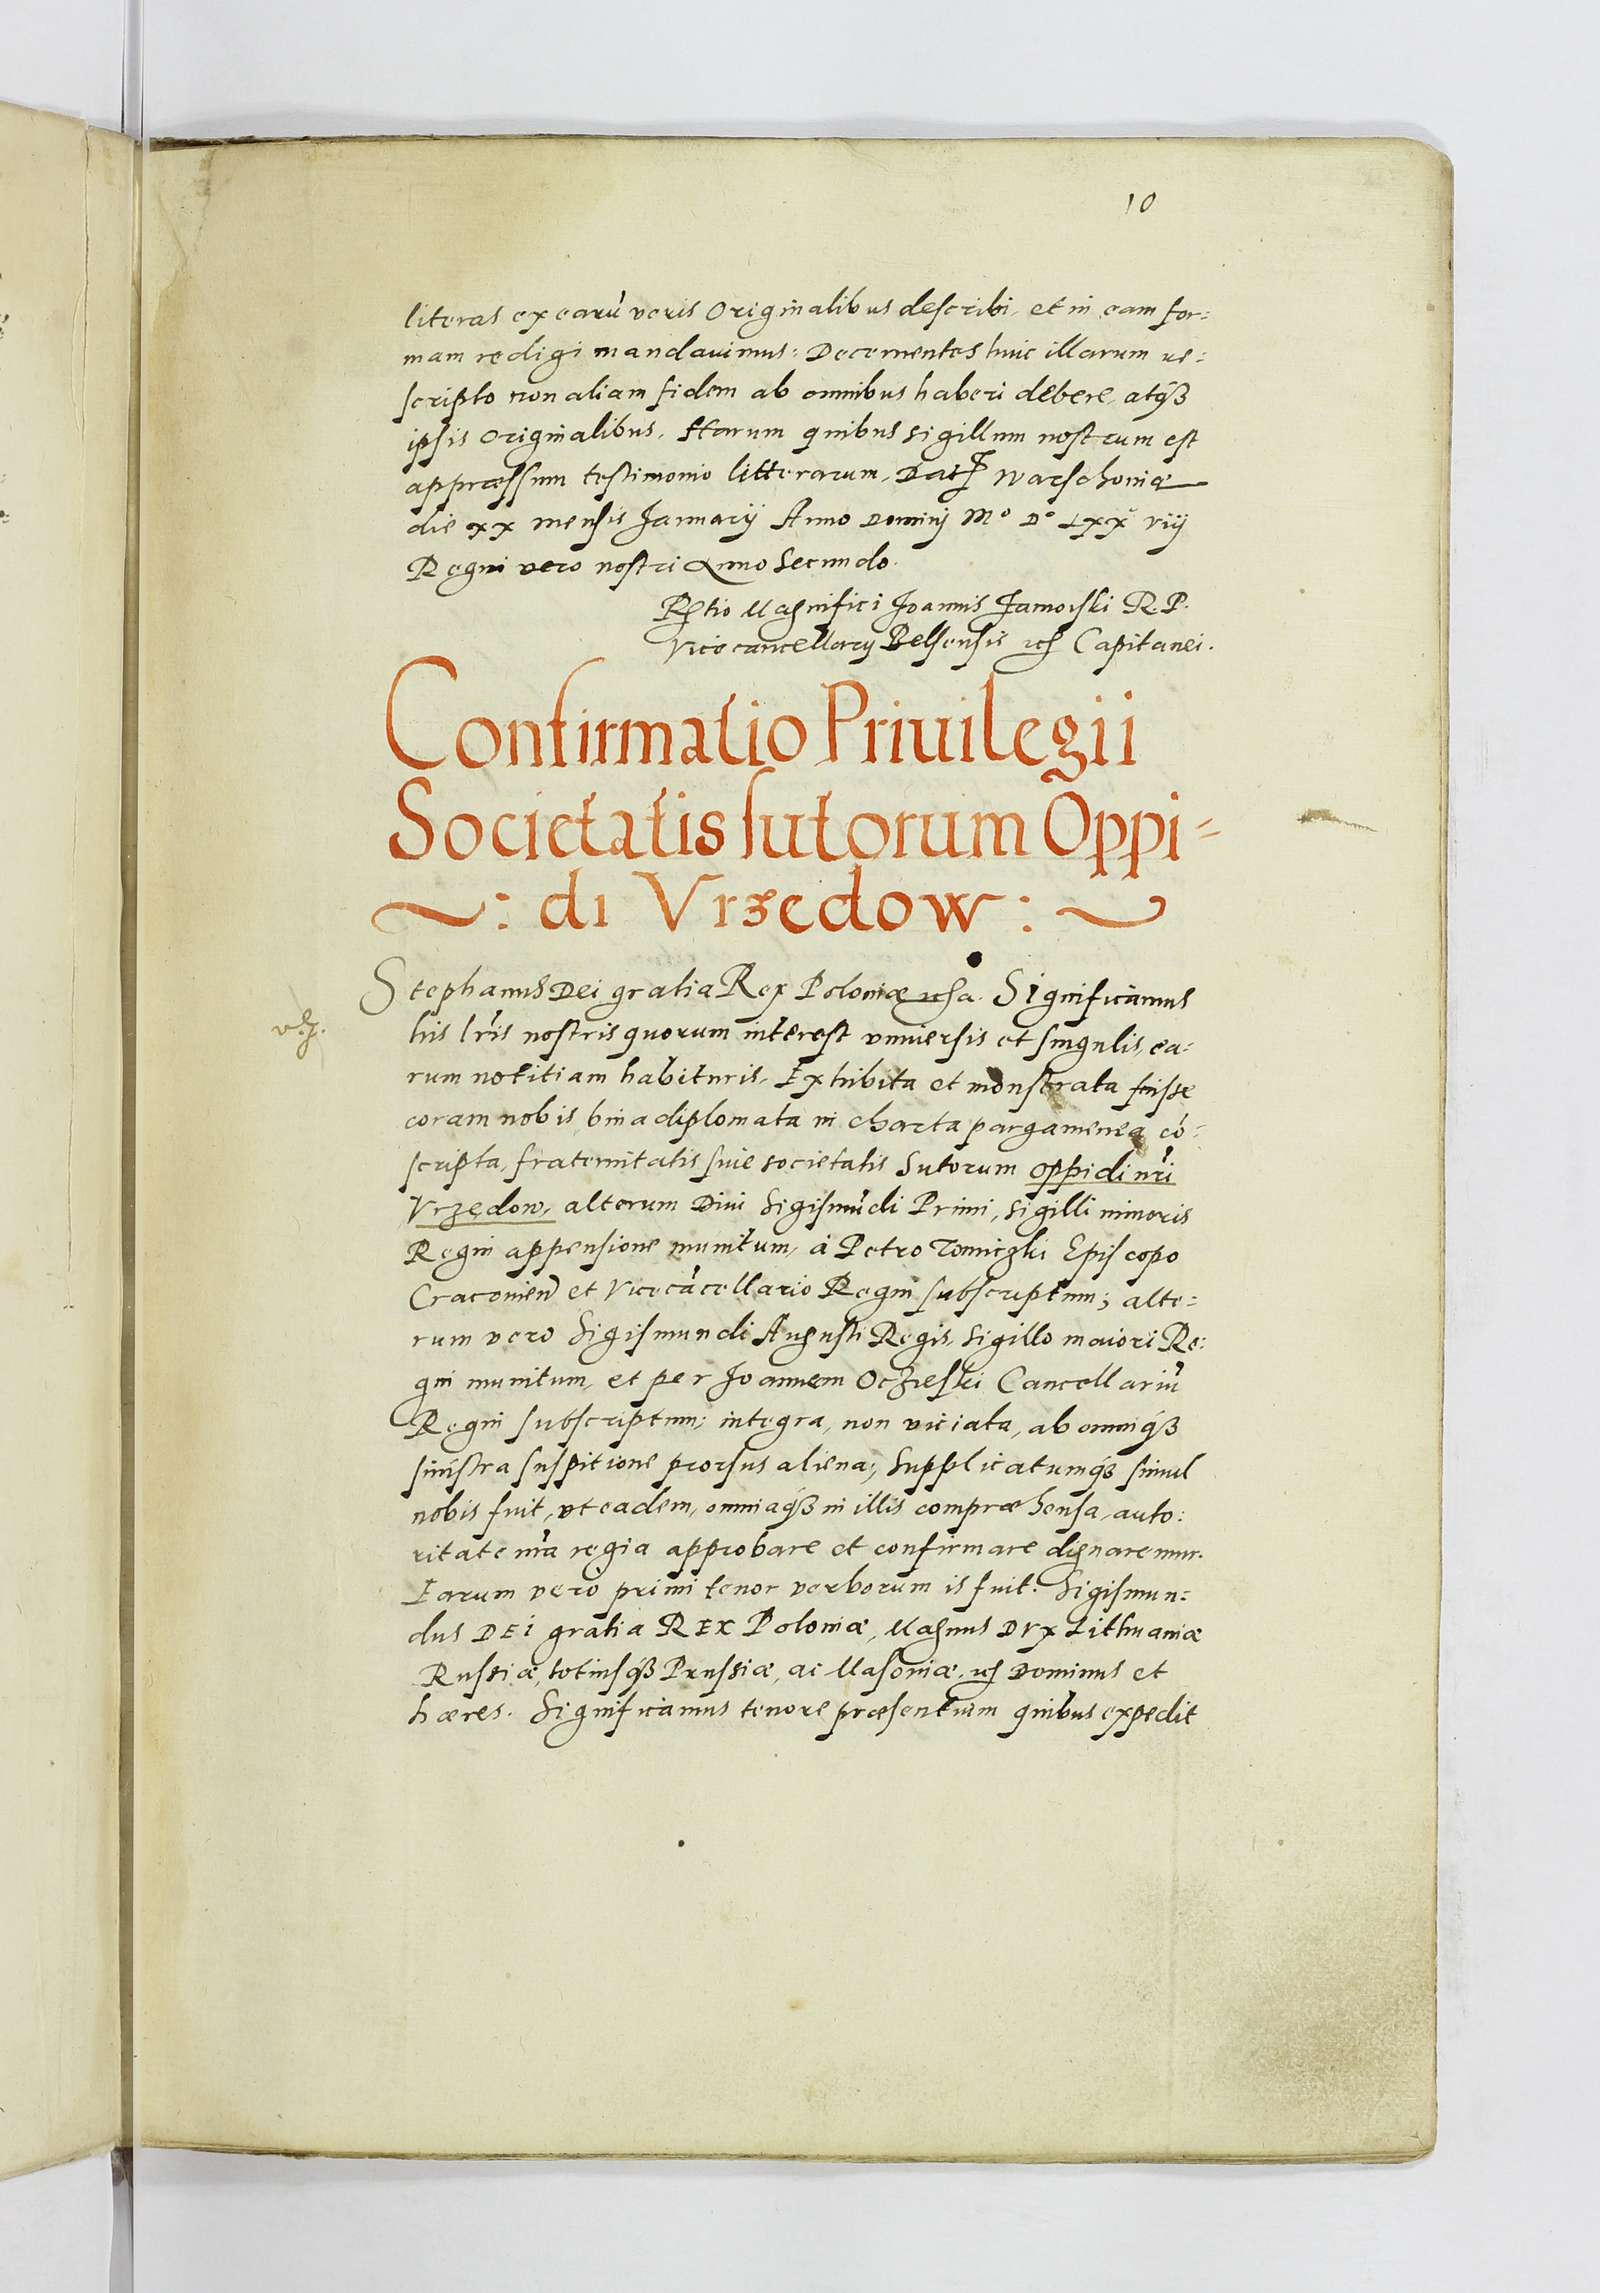 10
literas ex earũ veris Originalibus describi, et in eam for:
mam redigi mandauimus: Decernentes huic illarum re:
scripto non aliam fidem ab omnibus haberi debere, atq́ꝫ
ipsis Originalibus. Harum quibus sigillum nostrum est
appræssum testimonio litterarum. Dat Warschouiæ
die xx mensis January Anno Dominj Mº Dº Lxxº viij
Regni vero nostri Anno Secundo.
Rtio Magnifici Joannis Zamoiski R. P.
Vicecancellary Belsensis Capitanei.
Confirmatio Priuilegii
Societatis sutorum Oppi=
~: di Vrzedow: ~
Stephanus Dei gratia Rex Poloniæ Significamus
his lr̃is nostris quorum interest vniuersis et singulis, ea:
rum notitiam habituris. Exhibita et monstrata fuisse
coram nobis bina diplomata in charta pargamenea cõ:
scripta, fraternitatis siue societatis Sutorum oppidi nr̃i
Vrzędow, alterum Diui Sigismũdi Primi, sigilli minoris
Regni appensione munitum, à Petro Tomiczki Episcopo
Cracouien et Vicecãcellario Regni subscriptum; alte:
rum vero Sigismundi Augusti Regis, sigillo maiori Re:
gni munitum, et per Joannem Oczieski Cancellariũ
Regni subscriptum; integra, non viciata, ab omniq́ꝫ
sinistra suspitione prorsus aliena; Supplicatumq́ꝫ simul
nobis fuit, vt eadem, omniaq́ꝫ in illis compræhensa, auto:
ritate nr̃a regia approbare et confirmare dignaremur.
Earum vero primi tenor verborum is fuit. Sigismun=
dus DEI gratia REX Poloniæ, Magnus Dvx Lithuaniæ
Russiæ, totiusq́ꝫ Prussiæ, ac Masouiæ, Dominus et
hæres. Significamus tenore præsentium quibus expedit